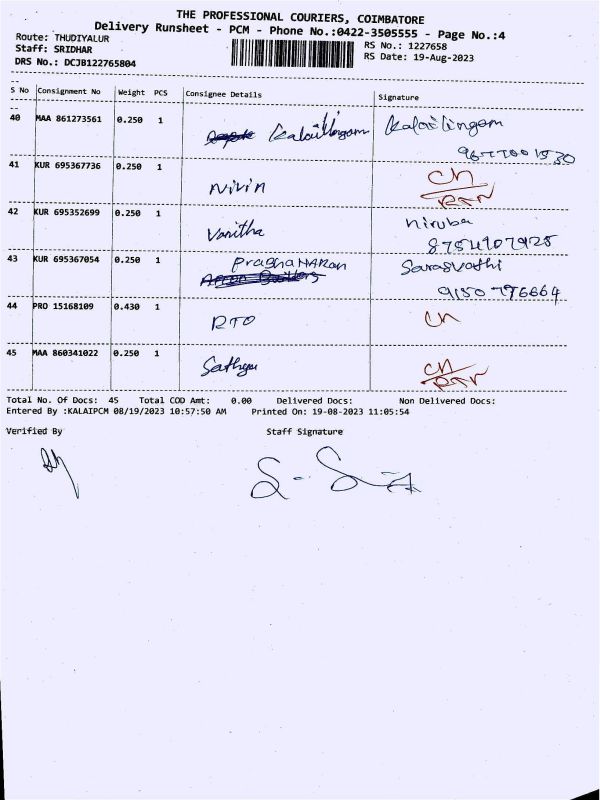 THE PROFESSIONAL COURIERS, COIMBATORE
Delivery Runsheet - PCM - Phone No.:0422-3505555 - Page No.:4
Route: THUDIYALUR
RS No.: 1227658
Staff: SRIDHAR
RS Date: 19-Aug-2023
DRS No.: DCJB122765804
S No Consignment No Weight PCS Consignee Details Signature
40 MAA 861273561 0.250 1 Kalailingam Kalailingam
41 KUR 695367736 0.250 1 Nivin CN
42 KUR 695352699 0.250 1 Vanitha Niruba
8754907925
43 KUR 695367054 0.250 1 PraghaHARan Sarasvathi
9150 776664
44 PRO 15168109 0.430 1 RTO CN
45 MAA 860341022 0.250 1 Sathya CN
Total No. Of Docs: 45 Total COD Amt: 0.00 Delivered Docs: Non Delivered Docs:
Entered By :KALAIPCM 08/19/2023 10:57:50 AM Printed On: 19-08-2023 11:05:54
Verified By Staff Signature